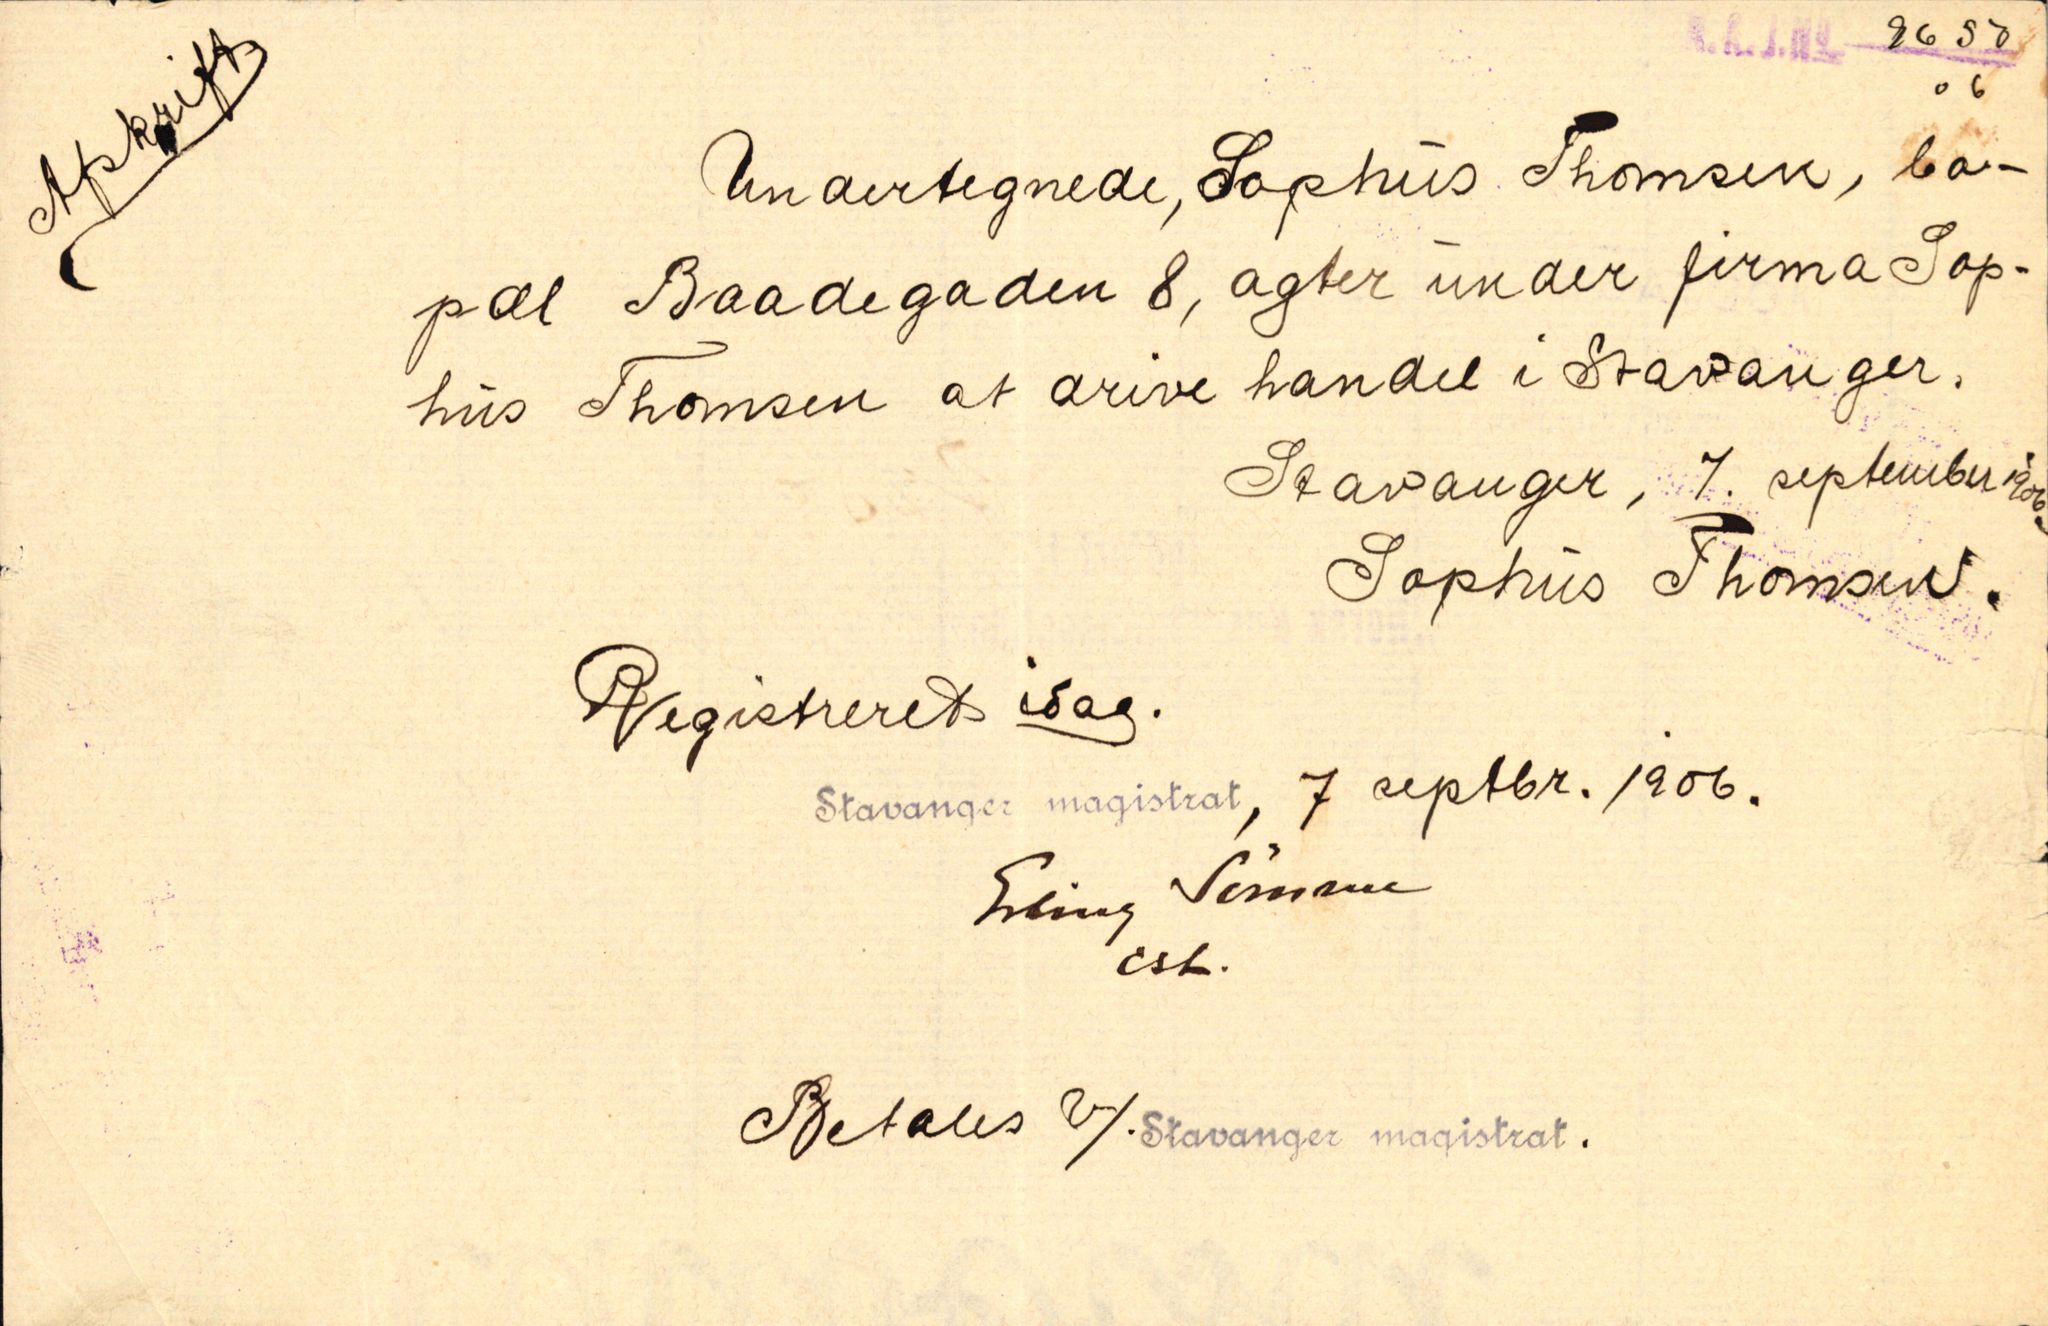 Afskrift
9650
06
Undertegnede, Sophus Thomsen, bo-
pæl Baadegaden 8, agter under firma Sop-
hus Thomsen at drive handel i Stavanger.
Stavanger, 7. september 1906.
Sophus Thomsen.
Registreret idag.
Stavanger magistrat, 7 septbr. 1906.
Erling Sömme
cst.
Betales v/. Stavanger magistrat.